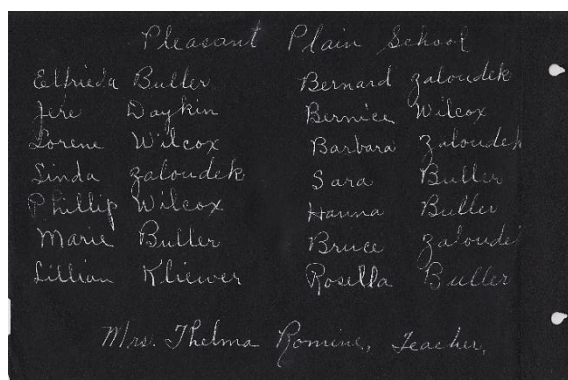 Pleasant Plain School
Elfrieda Buller
Jere Daykin
Lorene Wilcox
Linda Zaloudek
Phillip Wilcox
Marie Buller
Lillian Kliewer
Bernard Zaloudek
Bernice Wilcox
Barbara Zaloudek
Sara Buller
Hanna Buller
Bruce Zaloudek
Rosella Buller
Mrs. Thelma Romine, Teacher,